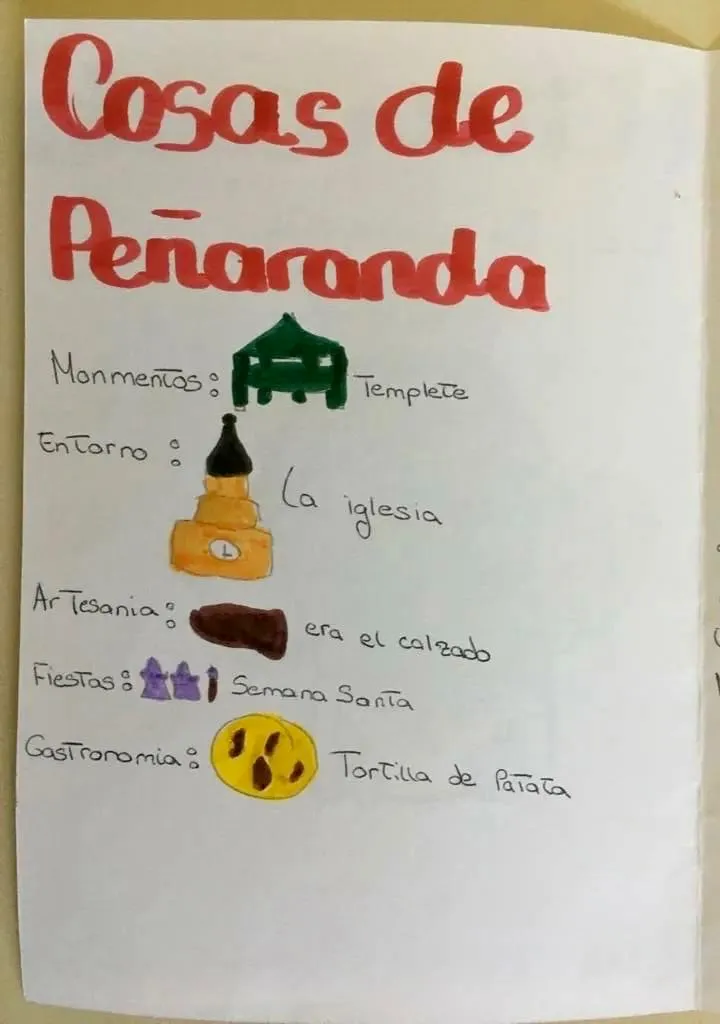 Cosas de
Peñaranda
Monmentos: Templete
Entorno: La iglesia
Artesania: era el calzado
Fiestas: Semana Santa
Gastronomia: Tortilla de Patata